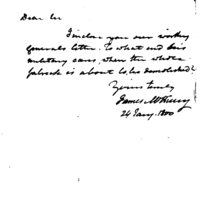 Dear Sir
I inclose you our working
generals letter. To what end his
military cares, when the whole
fabrick is about to be demolished?
Yours truly
James McHenry
24 Jany. 1800